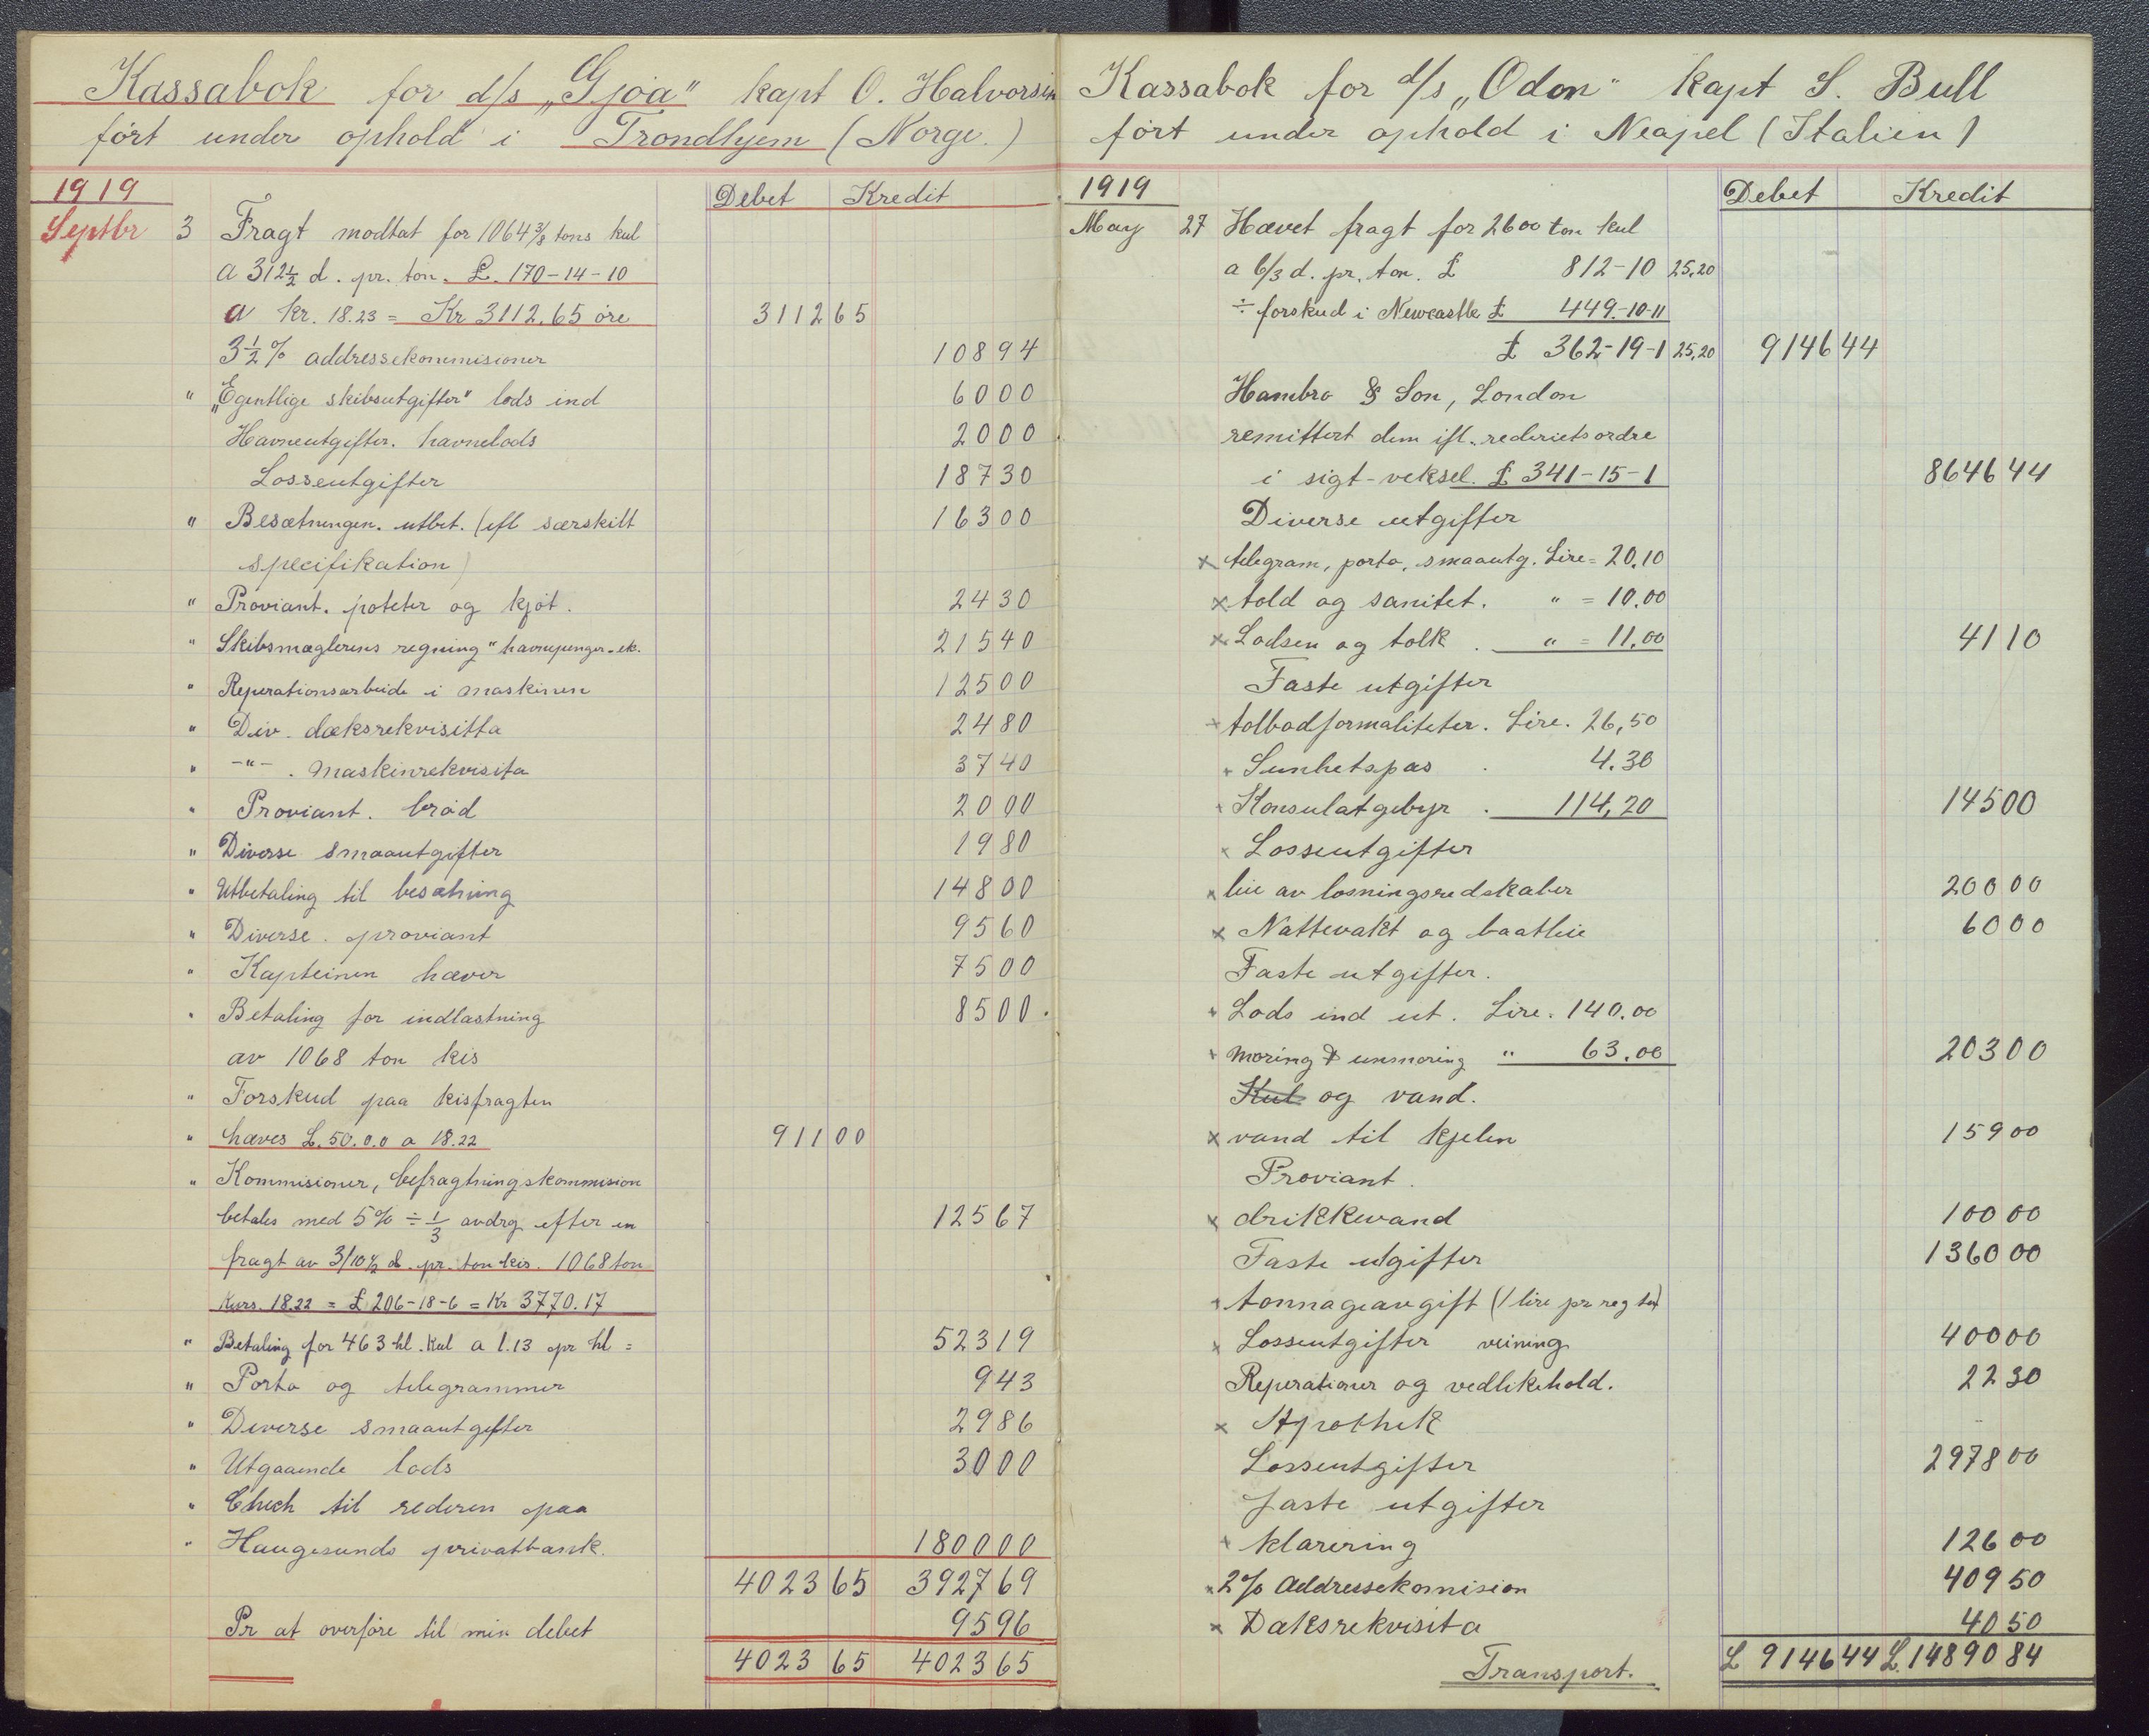 Kassabok for d/s „Gjøa" kapt O. Halvorsen
ført under ophold i Trondhjem (Norge.)
1919 Debet Kredit
Septbr 3 Fragt modtat for 1064 3/8 tons kul
a 312½ d. pr. ton. £. 170-14-10
a kr. 18.23 = Kr 3112.65 øre 3112 65
3½ % addressekommisioner 108 94
" „Egentlige skibsutgifter" lods ind 60 00
Havneutgifter. havnelods 20 00
Losseutgifter 187 30
" Besætningen. utbet. (ifl særskilt 163 00
specifikation)
" Proviant. poteter og kjøt. 24 30
" Skibsmæglerens regning " havnepenger-etc. 215 40
" Reperationsarbeide i maskinen 125 00
" Div. dæksrekvisitta 24 80
" -"- . maskinrekvisita 37 40
" Proviant. brød 20 00
" Diverse smaautgifter 19 80
" Utbetaling til besætning 148 00
" Diverse. proviant 95 60
" Kapteinen hæver 75 00
" Betaling for indlastning 85 00.
av 1068 ton kis
" Forskud paa kisfragten
" hæves £. 50.0.0 a 18.22 911 00
" Kommisioner, befragtningskommision
betales med 5% ÷ 1/3 avdrg efter en 125 67
fragt av 3/10½ d. pr. ton kis. 1068 ton
Kurs. 18.22 = £ 206-18-6 = Kr 3770.17
" Betaling for 463 hl. Kul a 1.13 pr hl = 523 19
" Porto og telegrammer 9 43
" Diverse smaautgifter 29 86
" Utgaaende lods 30 00
" Chech til rederen paa
" Haugesunds privatbank. 1800 00
4023 65 3927 69
Pr at overføre til min debet 95 96
4023 65 4023 65
Kassabok for d/s „Odon" kapt S. Bull
ført under ophold i Neapel (Italien)
1919 Debet Kredit
May 27 Hævet fragt for 2600 ton kul
a 6/3 d. pr. ton. £ 812-10 25,20
÷ forskud i Newcastle £ 449.-10-11
£ 362-19-1 25,20 9146 44
Hambro & Son, London
remittert dem ifl. rederiets ordre
i sigt-veksel. £ 341-15-1 8646 44
Diverse utgifter
x telegram, porto, smaautg. Lire = 20.10
x told og sanitet. " = 10.00
x Lodsen og tolk . " = 11.00 41 10
Faste utgifter
x tolbodformaliteter. Lire. 26,50
x Sunhetspas . 4.30
x Konsulatgebyr . 114,20 145 00
x Losseutgifter
x leie av losningsredskaber 200 00
x Nattevakt og baatleie 60 00
Faste utgifter.
x Lods ind ut. Lire. 140.00
x moring & unmoring " 63.00 203 00
Kul og vand.
x vand til kjelen 159 00
Proviant.
x drikkevand 100 00
Faste utgifter 1360 00
x tonnageavgift (1 lire pr reg ton)
x Losseutgifter veining 400 00
Reperationer og vedlikehold. 22 30
x Apothek
Losseutgifter 2978 00
faste utgifter
x klarering 126 00
x 2% addressekomision 409 50
x Dæksrekvisita 40 50
Transport. £ 9146 44 £. 14890 84